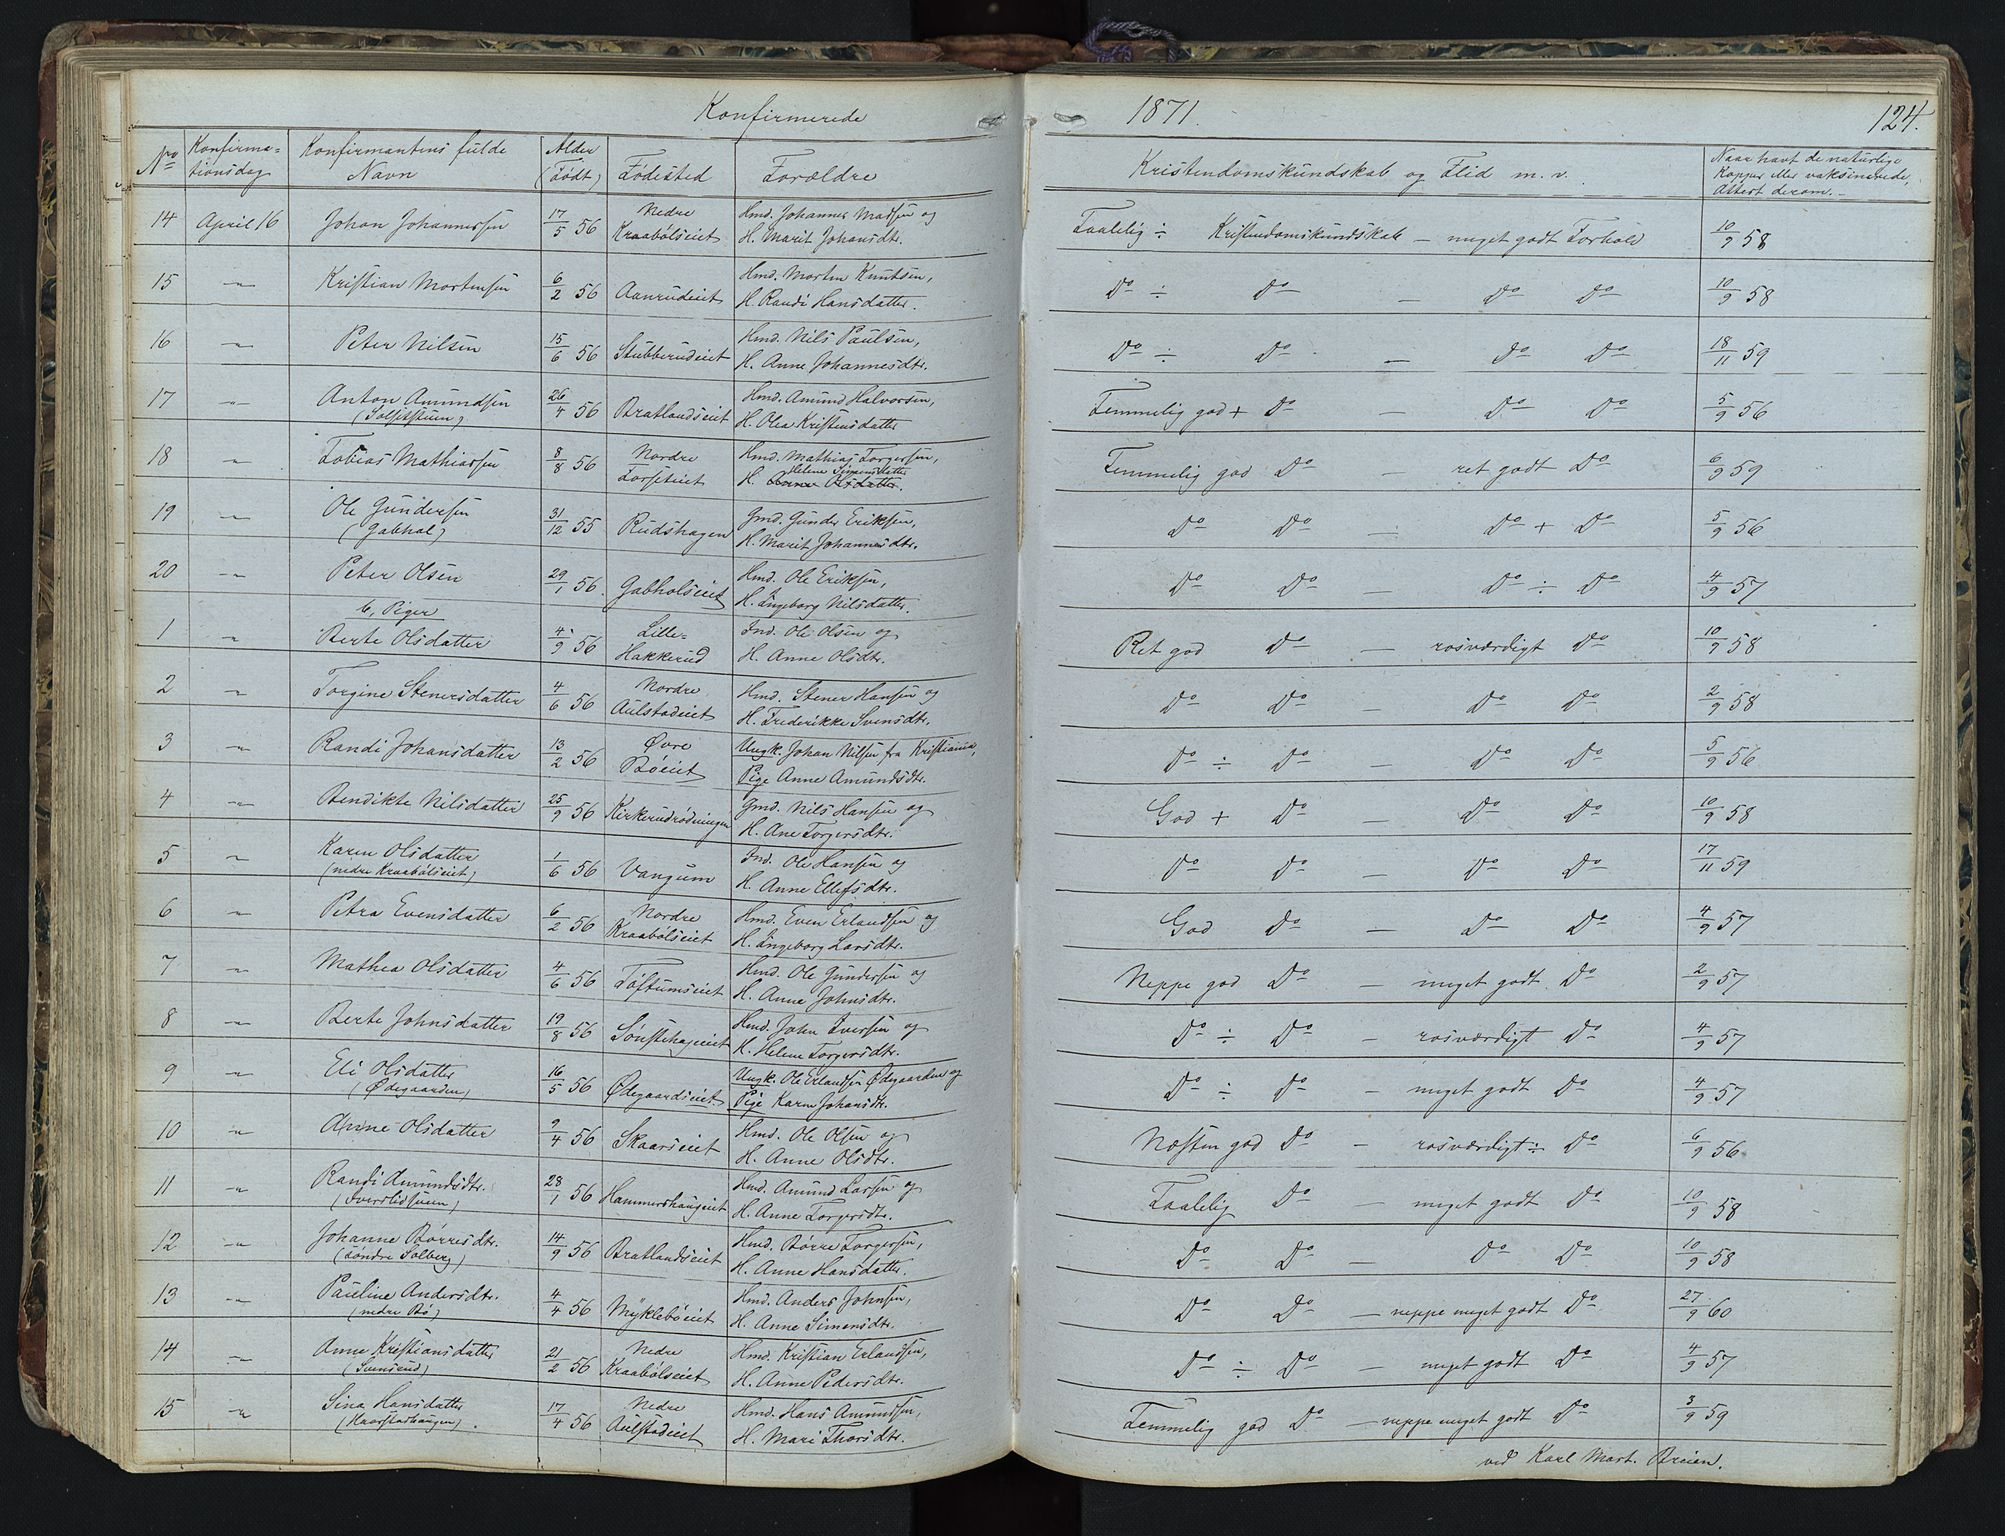 Konfirmerede 1871. 124.
No Konfirma- Konfirmantens fulde Alder
tionsdag Navn (Født) Fødested Forældre Kristendomskundskab og Flid m. v. Naar havt de naturlige
Kopper eller vaksinerede,
Attest derom.
14 April 16 Johan Johannessen 17/5 56 Nedre Hmd. Johannes Madsen og Taalelig ÷ Kristendomskundskab — meget godt Forhold 10/9 58
Kraabølseiet H. Marit Johansdtr.
15 -"- Kristian Mortensen 6/2 56 Aanrudeiet Hmd. Morten Knutsen, Do ÷ Do — Do Do 10/9 58
H. Randi Hansdatter.
16 -"- Peter Nilsen 15/6 56 Stubberudeiet Hmd. Nils Paulsen, Do ÷ Do — Do Do 18/11 59
H. Anne Johannesdtr.
17 -"- Anton Amundsen 26/4 56 Bratlandseiet Hmd. Amund Halvorsen, Temmelig god + Do — Do Do 5/9 56
H. Olea Kristensdatter
18 -"- Tobias Mathiassen 8/8 56 Nordre Hmd. Mathias Torgersen, Temmelig god Do — ret godt Do 6/9 59
Helene Simensdatter
Forseteiet H. Anne Olsdatter.
19 -"- Ole Gundersen 31/12 55 Rudshagen Gmd. Gunder Eriksen, Do Do — Do + Do 5/9 56
(Gabhol) H. Marit Johannesdtr.
20 -"- Peter Olsen 29/1 56. Gabholseiet Hmd. Ole Eriksen, Do Do — Do ÷ Do 4/9 57
H. Ingeborg Nilsdatter.
b, Piger
1 -"- Berte Olsdatter 4/9 56 Lille- Ind. Ole Olsen og Ret god Do — rosværdigt Do 10/9 58
Hakkerud H. Anne Olsdtr.
2 " Torgine Stenersdatter 4/6 56 Nordre Hmd. Stener Hansen og Do Do — Do Do 2/9 58
Aulstadeiet H. Frederikke Svensdtr.
3 -"- Randi Johansdatter 13/2 56 Øvre Ungk. Johan Nilsen fra Kristiania, Do ÷ Do — Do Do 5/9 56
Bøeiet Pige Anne Amundsdtr.
4 -"- Bendikte Nilsdatter 25/9 56 Kirkerudrødningen Gmd. Nils Hansen og God + Do — Do Do 10/9 58
H. Ane Torgersdtr.
5 -"- Karen Olsdatter 1/6 56 Vangum Ind. Ole Hansen og Do Do — Do Do 17/11 59
(nedre Kraabølseiet) H. Anne Ellefsdtr.
6 " Petra Evensdatter 6/2 56 Nordre Hmd. Even Erlandsen og God Do — Do Do 4/9 57
Kraabølseiet H. Ingeborg Larsdtr.
7 " Mathea Olsdatter 4/6 56 Toftumseiet Hmd. Ole Gundersen og Neppe god Do — meget godt Do 2/9 57
H. Anne Johnsdtr.
8 -"- Berte Johnsdatter 19/8 56 Sønstehageiet Hmd. John Iversen og Do ÷ Do — rosværdigt Do 4/9 57
H. Helene Torgersdtr.
9 " Eli Olsdatter 16/5 56 Ødegaardseiet Ungk. Ole Erlandsen Ødegaarden og Do ÷ Do — meget godt Do 4/9 57
(Ødegaarden) Pige Karen Johansdtr.
10 -"- Anne Olsdatter 9/4 56 Skaarseiet Hmd. Ole Olsen og Næsten god Do — rosværdigt ÷ Do 6/9 56
H. Anne Olsdtr.
11 " Randi Amundsdtr. 28/1 56 Hammershaugeiet Hmd. Amund Larsen og Taalelig Do — meget godt Do 10/9 58
H. Anne Torgersdtr.
12 -"- Johanne Børresdtr. 14/9 56 Bratlandseiet Hmd. Børre Torgersen, Do Do — Do Do 10/9 58
(Søndre Solberg) H. Anne Hansdatter.
13 -"- Pauline Andersdtr. 4/4 56 Myklebøeiet Hmd. Anders Johnsen, Do Do — neppe meget godt Do 27/9 60
(nedre Bø) H. Anne Simensdtr.
14 -"- Anne Kristiansdatter 21/2 56 Nedre Hmd. Kristian Erlandsen, Do ÷ Do — meget godt Do 4/9 57
(Svenserud) Kraabølseiet H. Anne Pedersdtr.
15 " Sina Hansdatter 17/4 56 Nedre Hmd. Hans Amundsen, Temmelig god Do — neppe meget godt Do 3/9 59
Aulstadeiet H. Mari Thorsdtr.
ved Karl Mart. Breien.